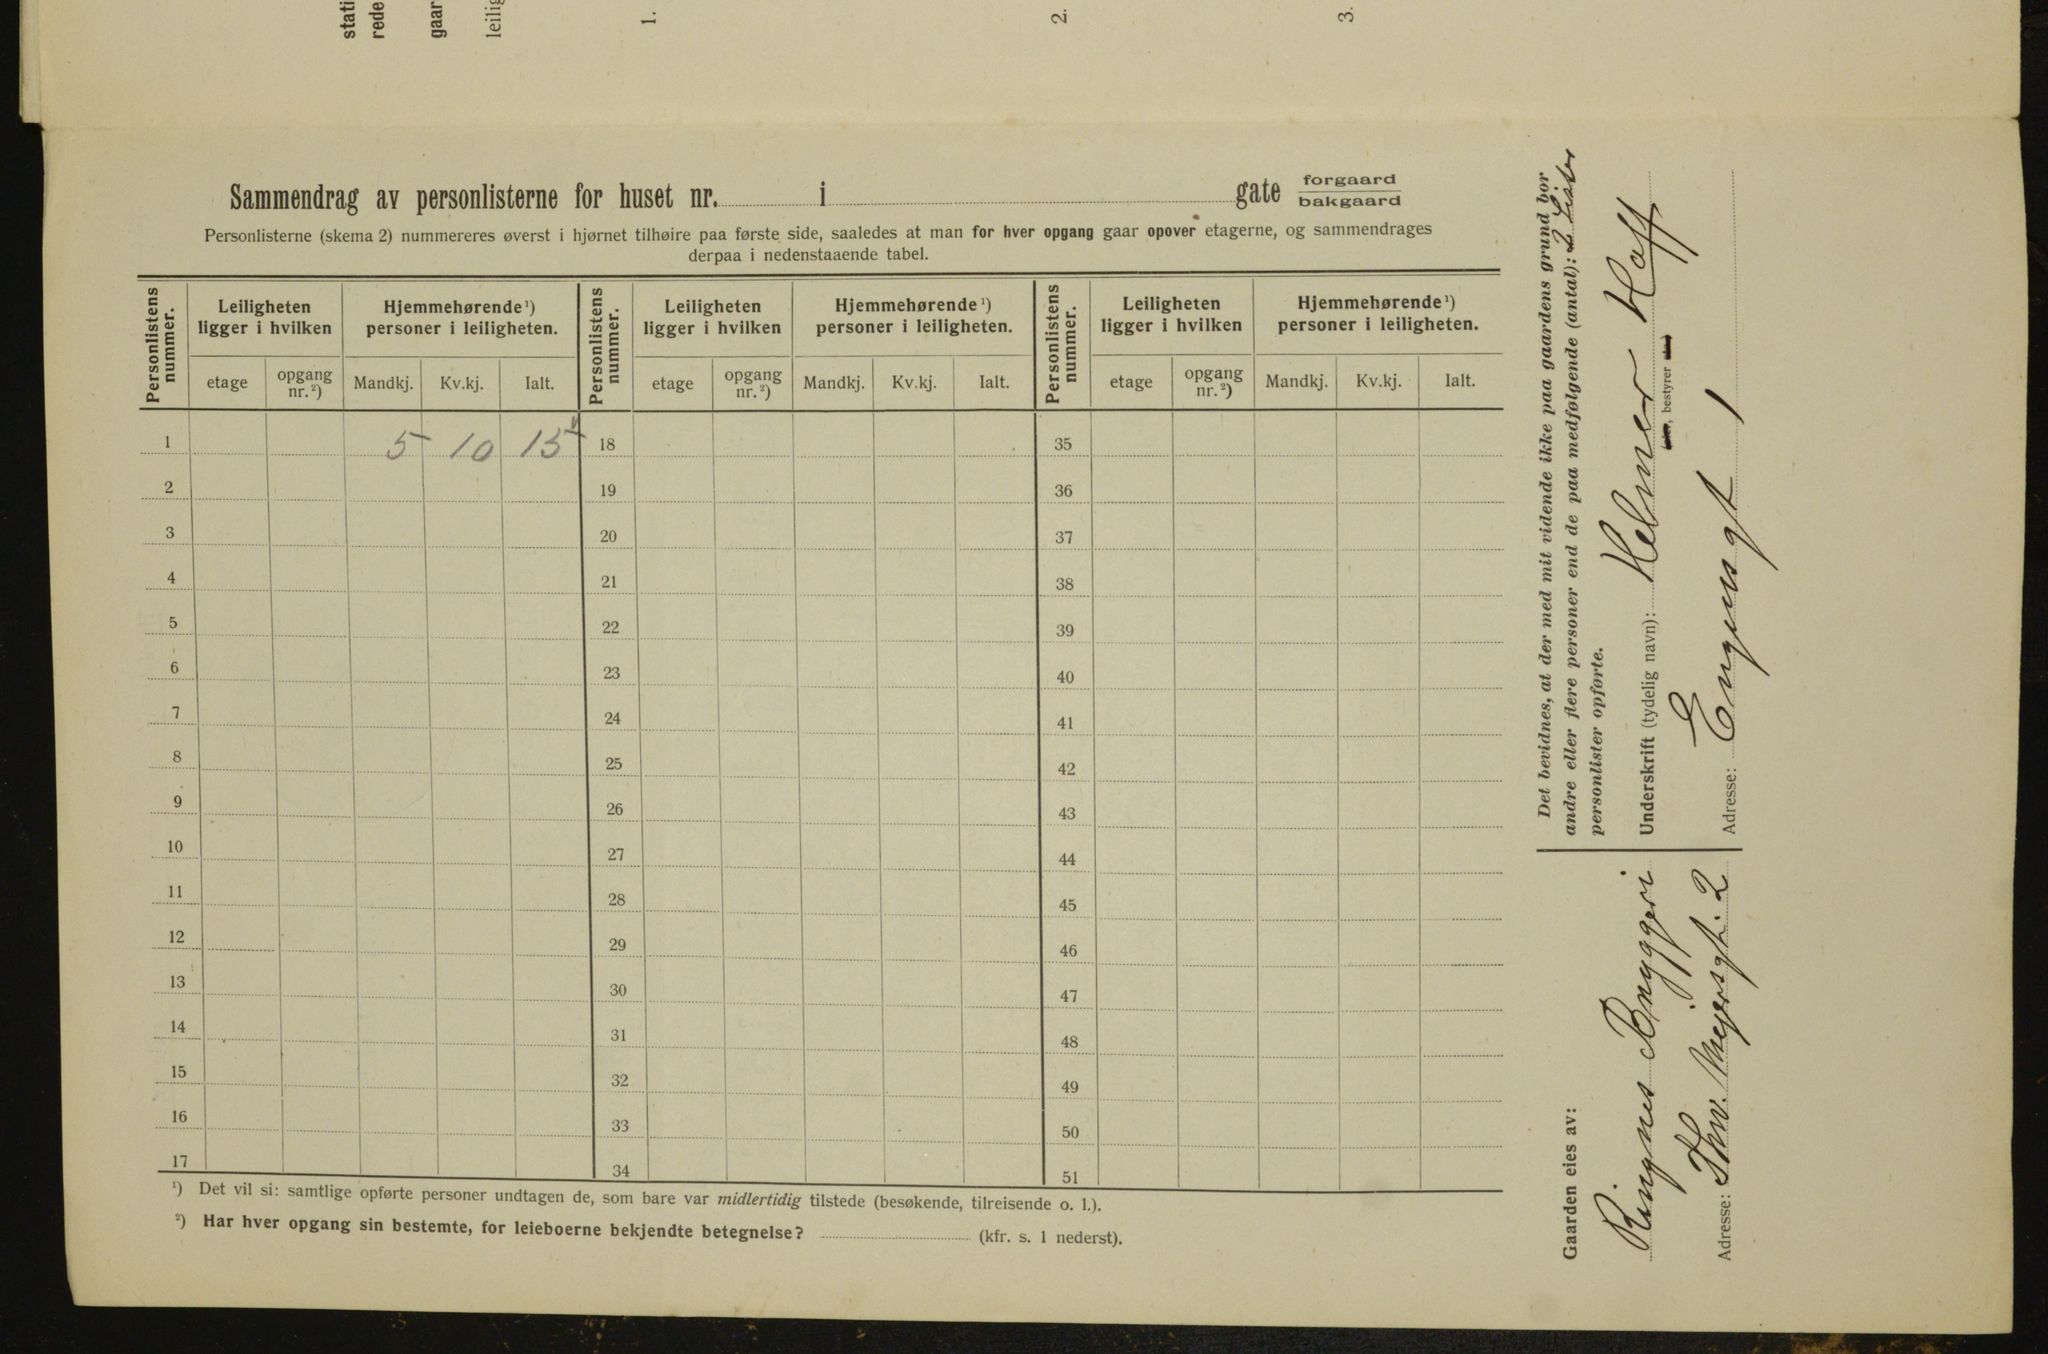 stati
rede
gaar
leilig
1.
2.
3.
Sammendrag av personlisterne for huset nr. i gate forgaard bakgaard
Personlisterne (skema 2) nummereres øverst i hjørnet tilhøire paa første side, saaledes at man for hver opgang gaar opover etagerne, og sammendrages
derpaa i nedenstaaende tabel.
Personlistens nummer. Leiligheten ligger i hvilken Hjemmehørende¹) personer i leiligheten. Personlistens nummer. Leiligheten ligger i hvilken Hjemmehørende¹) personer i leiligheten. Personlistens nummer. Leiligheten ligger i hvilken Hjemmehørende¹) personer i leiligheten.
etage opgang nr.²) Mandkj. Kv.kj. Ialt. etage opgang nr.²) Mandkj. Kv.kj. Ialt. etage opgang nr.²) Mandkj. Kv.kj. Ialt.
1 5 10 15 18 35
2 19 36
3 20 37
4 21 38
5 22 39
6 23 40
7 24 41
8 25 42
9 26 43
10 27 44
11 28 45
12 29 46
13 30 47
14 31 48
15 32 49
16 33 50
17 34 51
¹) Det vil si: samtlige opførte personer undtagen de, som bare var midlertidig tilstede (besøkende, tilreisende o. l.).
²) Har hver opgang sin bestemte, for leieboerne bekjendte betegnelse? (kfr. s. 1 nederst).
Gaarden eies av:
Ringnes Bryggeri
Adresse: Thv. Meyersgt. 2
Det bevidnes, at der med mit vidende ikke paa gaardens grund bor
andre eller flere personer end de paa medfølgende (antal): 2 Lister
personlister opførte.
Underskrift (tydelig navn): Helmer Hoff
bestyrer
Adresse: Engensgt 1